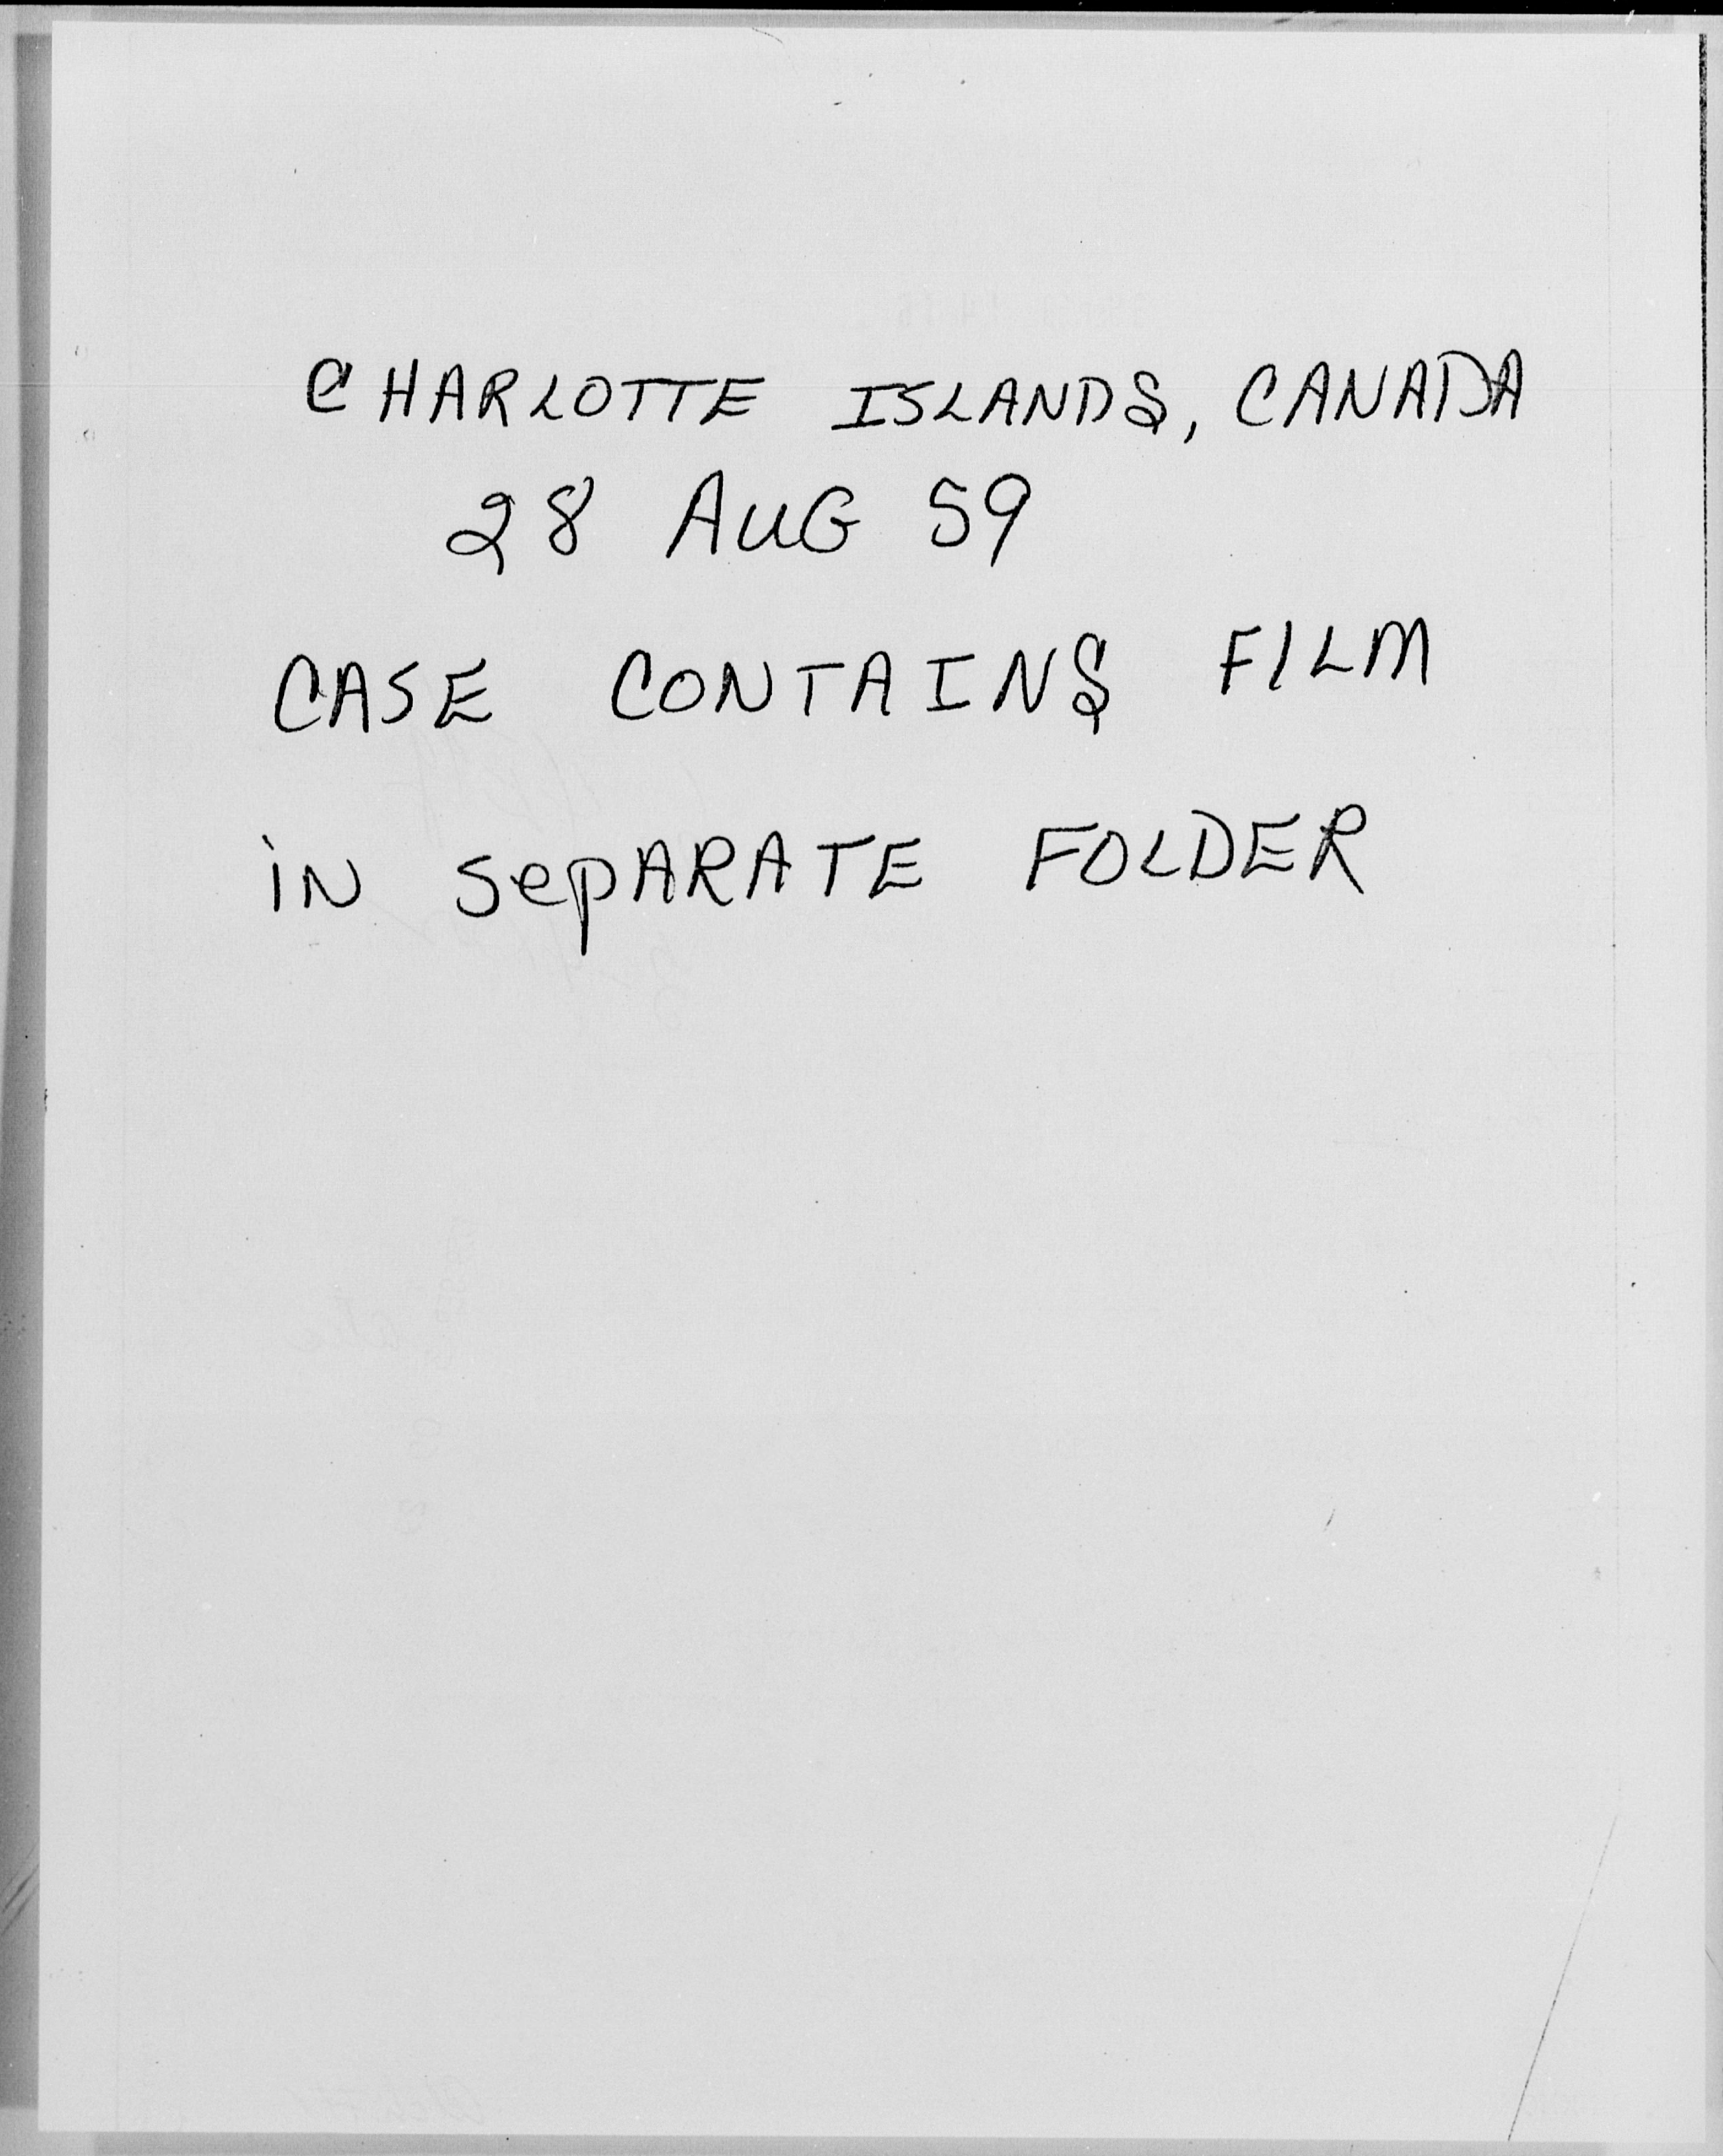 CHARLOTTE ISLANDS, CANADA
28 AUG 59
CASE CONTAINS FILM
iN SepARATE FOLDER